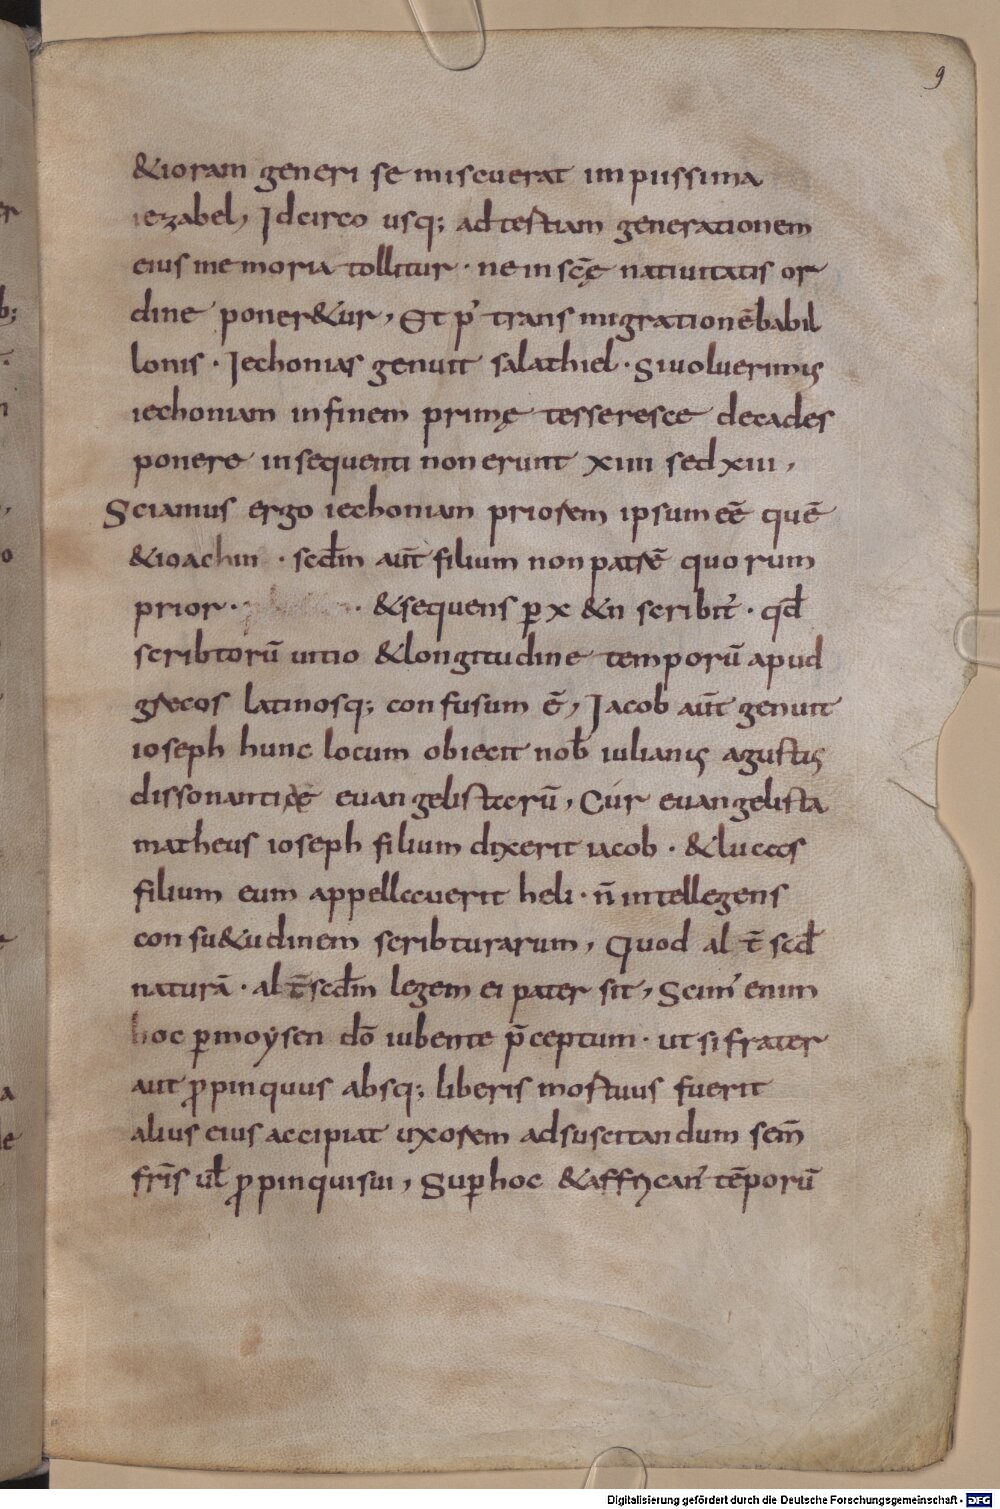 9
&ioram generi se miscuerat impiissima
iezabel, Idcirco usq; ad tertiam generationem
eius memoria tollitur · ne in scę̄ natiuitatis or
dine poner&ur, Et p' transmigrationē babil
lonis · Iechonias genuit salathiel · Si uoluerimus
iechoniam in finem primę tesseresce decades
ponere in sequenti non erunt xiiii sed xiii,
Sciamus ergo iechoniam priorem ipsum eē quē
&ioachin · scdm̄ aūt filium non patrē quorum
prior · · &sequens ꝑ x &n scribit' · qd̄
scribtorū uitio &longitudine temporū apud
grecos latinosq; confusum ē, Iacob aūt genuit
ioseph hunc locum obiecit nob̄ iulianus agustus
dissonantię euangelistarū, Cúr euangelista
matheus ioseph filium dixerit iacob · &lucas
filium eum appellauerit heli · n̄ intellegens
consu&udinem scribturarum, Quod alt̄ scd̄
naturā · alt̄ scdm̄ legem ei pater sit, Scim' enim
hoc ꝑ moysen dō iubente p̄ceptum · ut si frater
aut ꝓpinquus absq; liberis mortuus fuerit
alius eius accipiat uxorem ad suscitandum sem̄
fr̄is ul̄ ꝓpinqui sui, Suꝑ hoc &affrican' tēporū
Digitalisierung gefördert durch die Deutsche Forschungsgemeinschaft - DFG